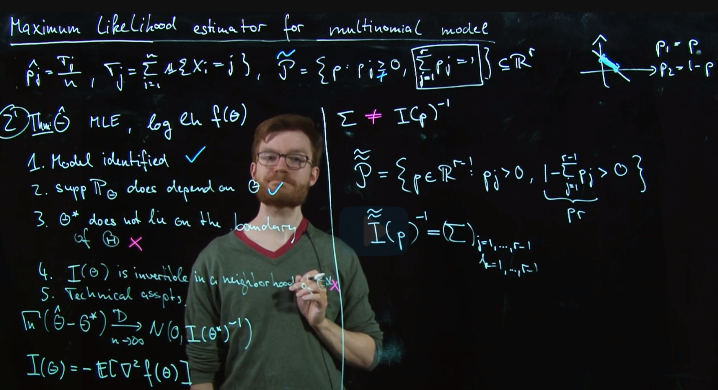 Maximum Likelihood estimator for multinomial model
p̂_j = T_j/n, T_j = Σ_{i=1}^n 𝟙{X_i = j}, P̃ = {p : p_j ≥ 0, Σ_{j=1}^r p_j = 1} ⊆ ℝ^r
p_1 = p
p_2 = 1-p
② Thm: θ̂ MLE, log lh f(θ)
1. Model identified ✓
2. supp P_θ does depend on θ ✓
3. θ* does not lie on the boundary
of Θ ×
4. I(θ) is invertible in a neighborhood
5. Technical asspts.
√n(θ̂ - θ*) →^D_{n→∞} N(0, I(θ*)^{-1})
I(θ) = -E[∇² f(θ)]
Σ ≠ I(p)^{-1}
P̃̃ = {p ∈ ℝ^{r-1} : p_j > 0, 1 - Σ_{j=1}^{r-1} p_j > 0}
p_r
Ĩ̃(p)^{-1} = (Σ)_{j=1,...,r-1
k=1,...,r-1}